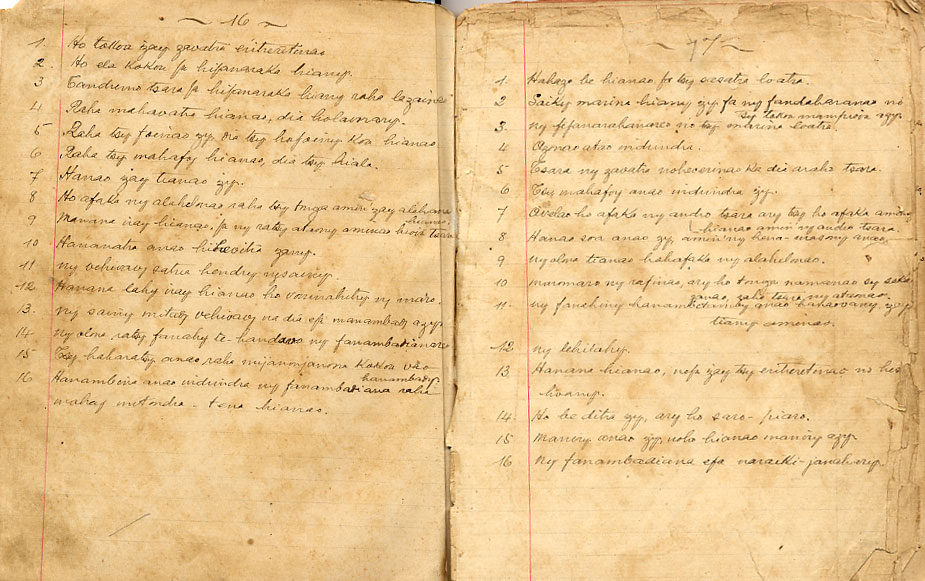 ~ 16 ~
1. Ho tokoa izay zavatra eritreretinao.
2. Ho ela kokoa fa hifanaraka hiany.
3 Tandremo tsara fa hifanaraka hiany raha lazainao
4 Raha mahavatra hianao, dia holaviny.
5 Raha tsy foinao izy, na tsy hofoiny koa hianao.
6 Raha tsy mahafoy hianao, dia tsy hiala.
7 Hanao izay tianao izy.
8 Ho afaka ny alahelonao raha tsy tonga amin'izay alehanao
hianao.
9 Manana iray hianao, fa ny ratsy ataony aminao hivoa tsara
10 Hananaha anao hihevitra izany.
11 ny vehivavy satria hendry ny sainy.
12 Hanana lahy iray hianao ho voninahitry ny maro.
13. ny sainy mitady vehivavy na dia efa manambady azy.
14 ny olona ratsy fanahy te-handao ny fanambadianao
15 Tsy haharatsy anao raha mijanonjanona kokoa vao
hanambady.
16 Hanambina anao indrindra ny fanambadiana raha
mahay mitondra-tena hianao.
~ 17 ~
1 Hahazo be hianao, fa tsy sesatra loatra.
2 Saiky marina hiany izy, fa ny fandaharanao no
tsy tokony mampiova azy.
3. ny fifanarahanareo no tsy marina loatra.
4 Azonao atao indrindra.
5 Tsara ny zavatra noheverinao ka dia araho tsara.
6 Tsy mahafoy anao indrindra izy.
7 Avelao ho afaka ny andro tsara ary tsy ho afaka amin
hianao amin'ny andro tsara.
8 Hanao soa anao izy, amin'ny hena-masony anao.
9 ny olona tianao hahafaka ny alahelonao.
10 maromaro ny rafinao, ary ho tonga namanao sy sakai
zanao, raha tsara ny ataonao.
11. ny fanahiny hanambitamby anao hanaovany izay
tiany aminao.
12 ny lehilahy.
13. Hanana hianao, nefa izay tsy eritreretinao no hes
hoany.
14. Ho be ditra izy, ary ho saro-piaro.
15 Maniry anao izy, noho hianao maniry azy.
16 Ny fanambadiana efa naraiki-janahary.